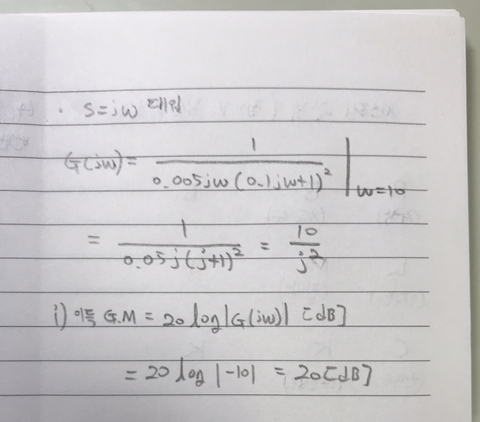 · S=jω 대입
G(jω) = 1 / 0.005jω(0.1jω+1)² | ω=10
= 1 / 0.05j(j+1)² = 10 / j²
i) 이득 G.M = 20 log|G(jω)| [dB]
= 20 log |-10| = 20[dB]